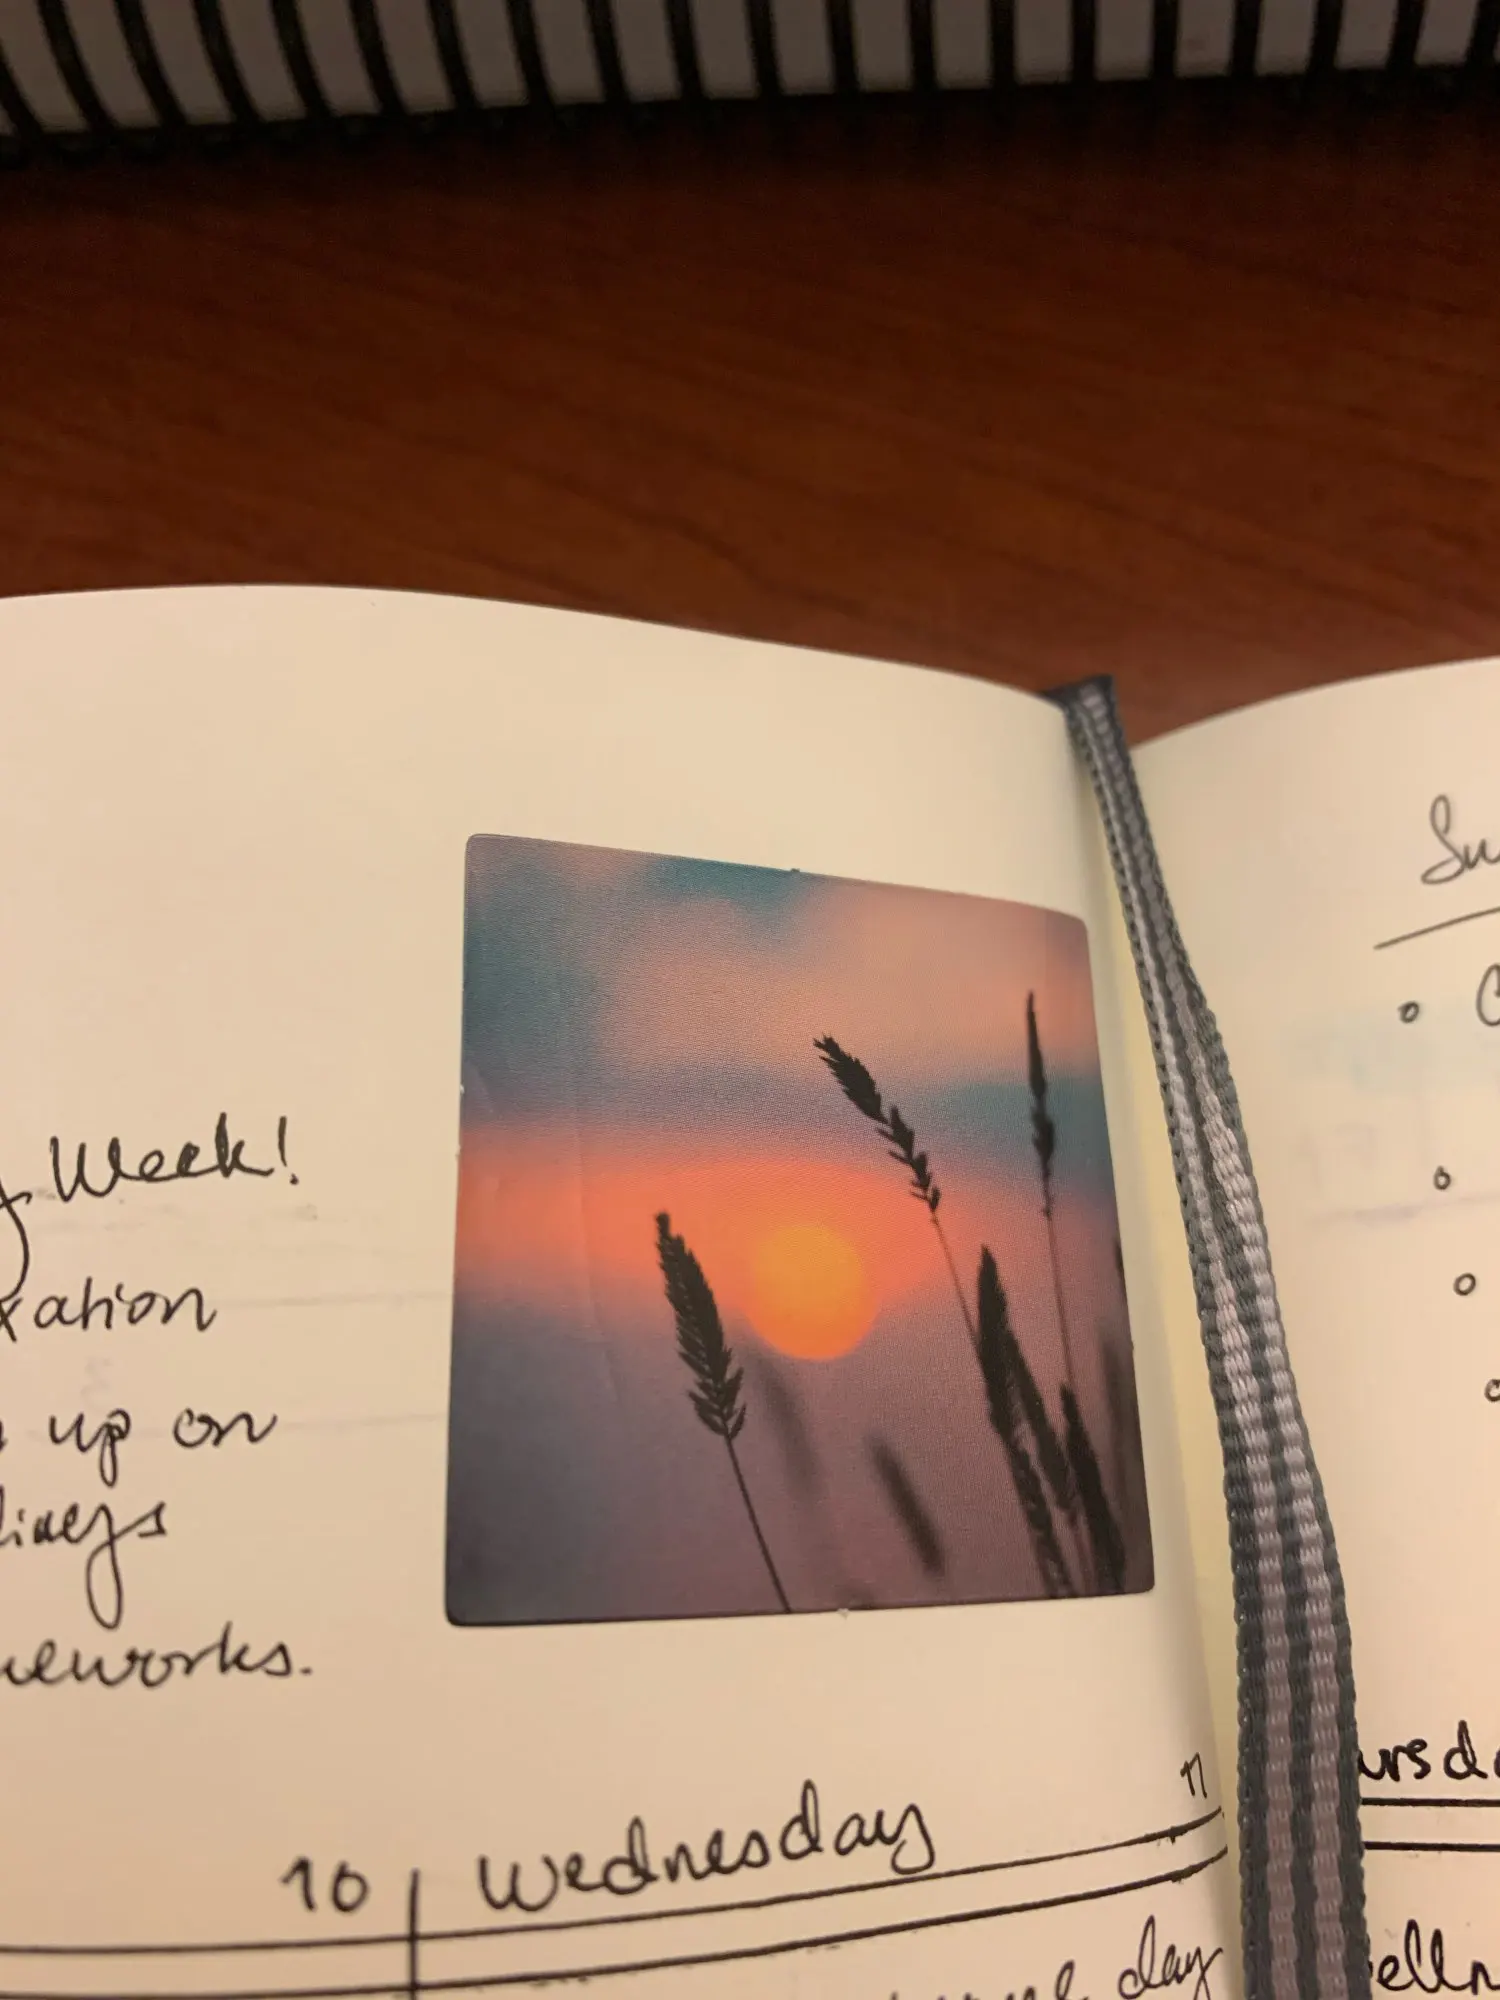 Week!
xation
up on
dings
meworks.
10
Wednesday 11
day
Su
ursda
elln